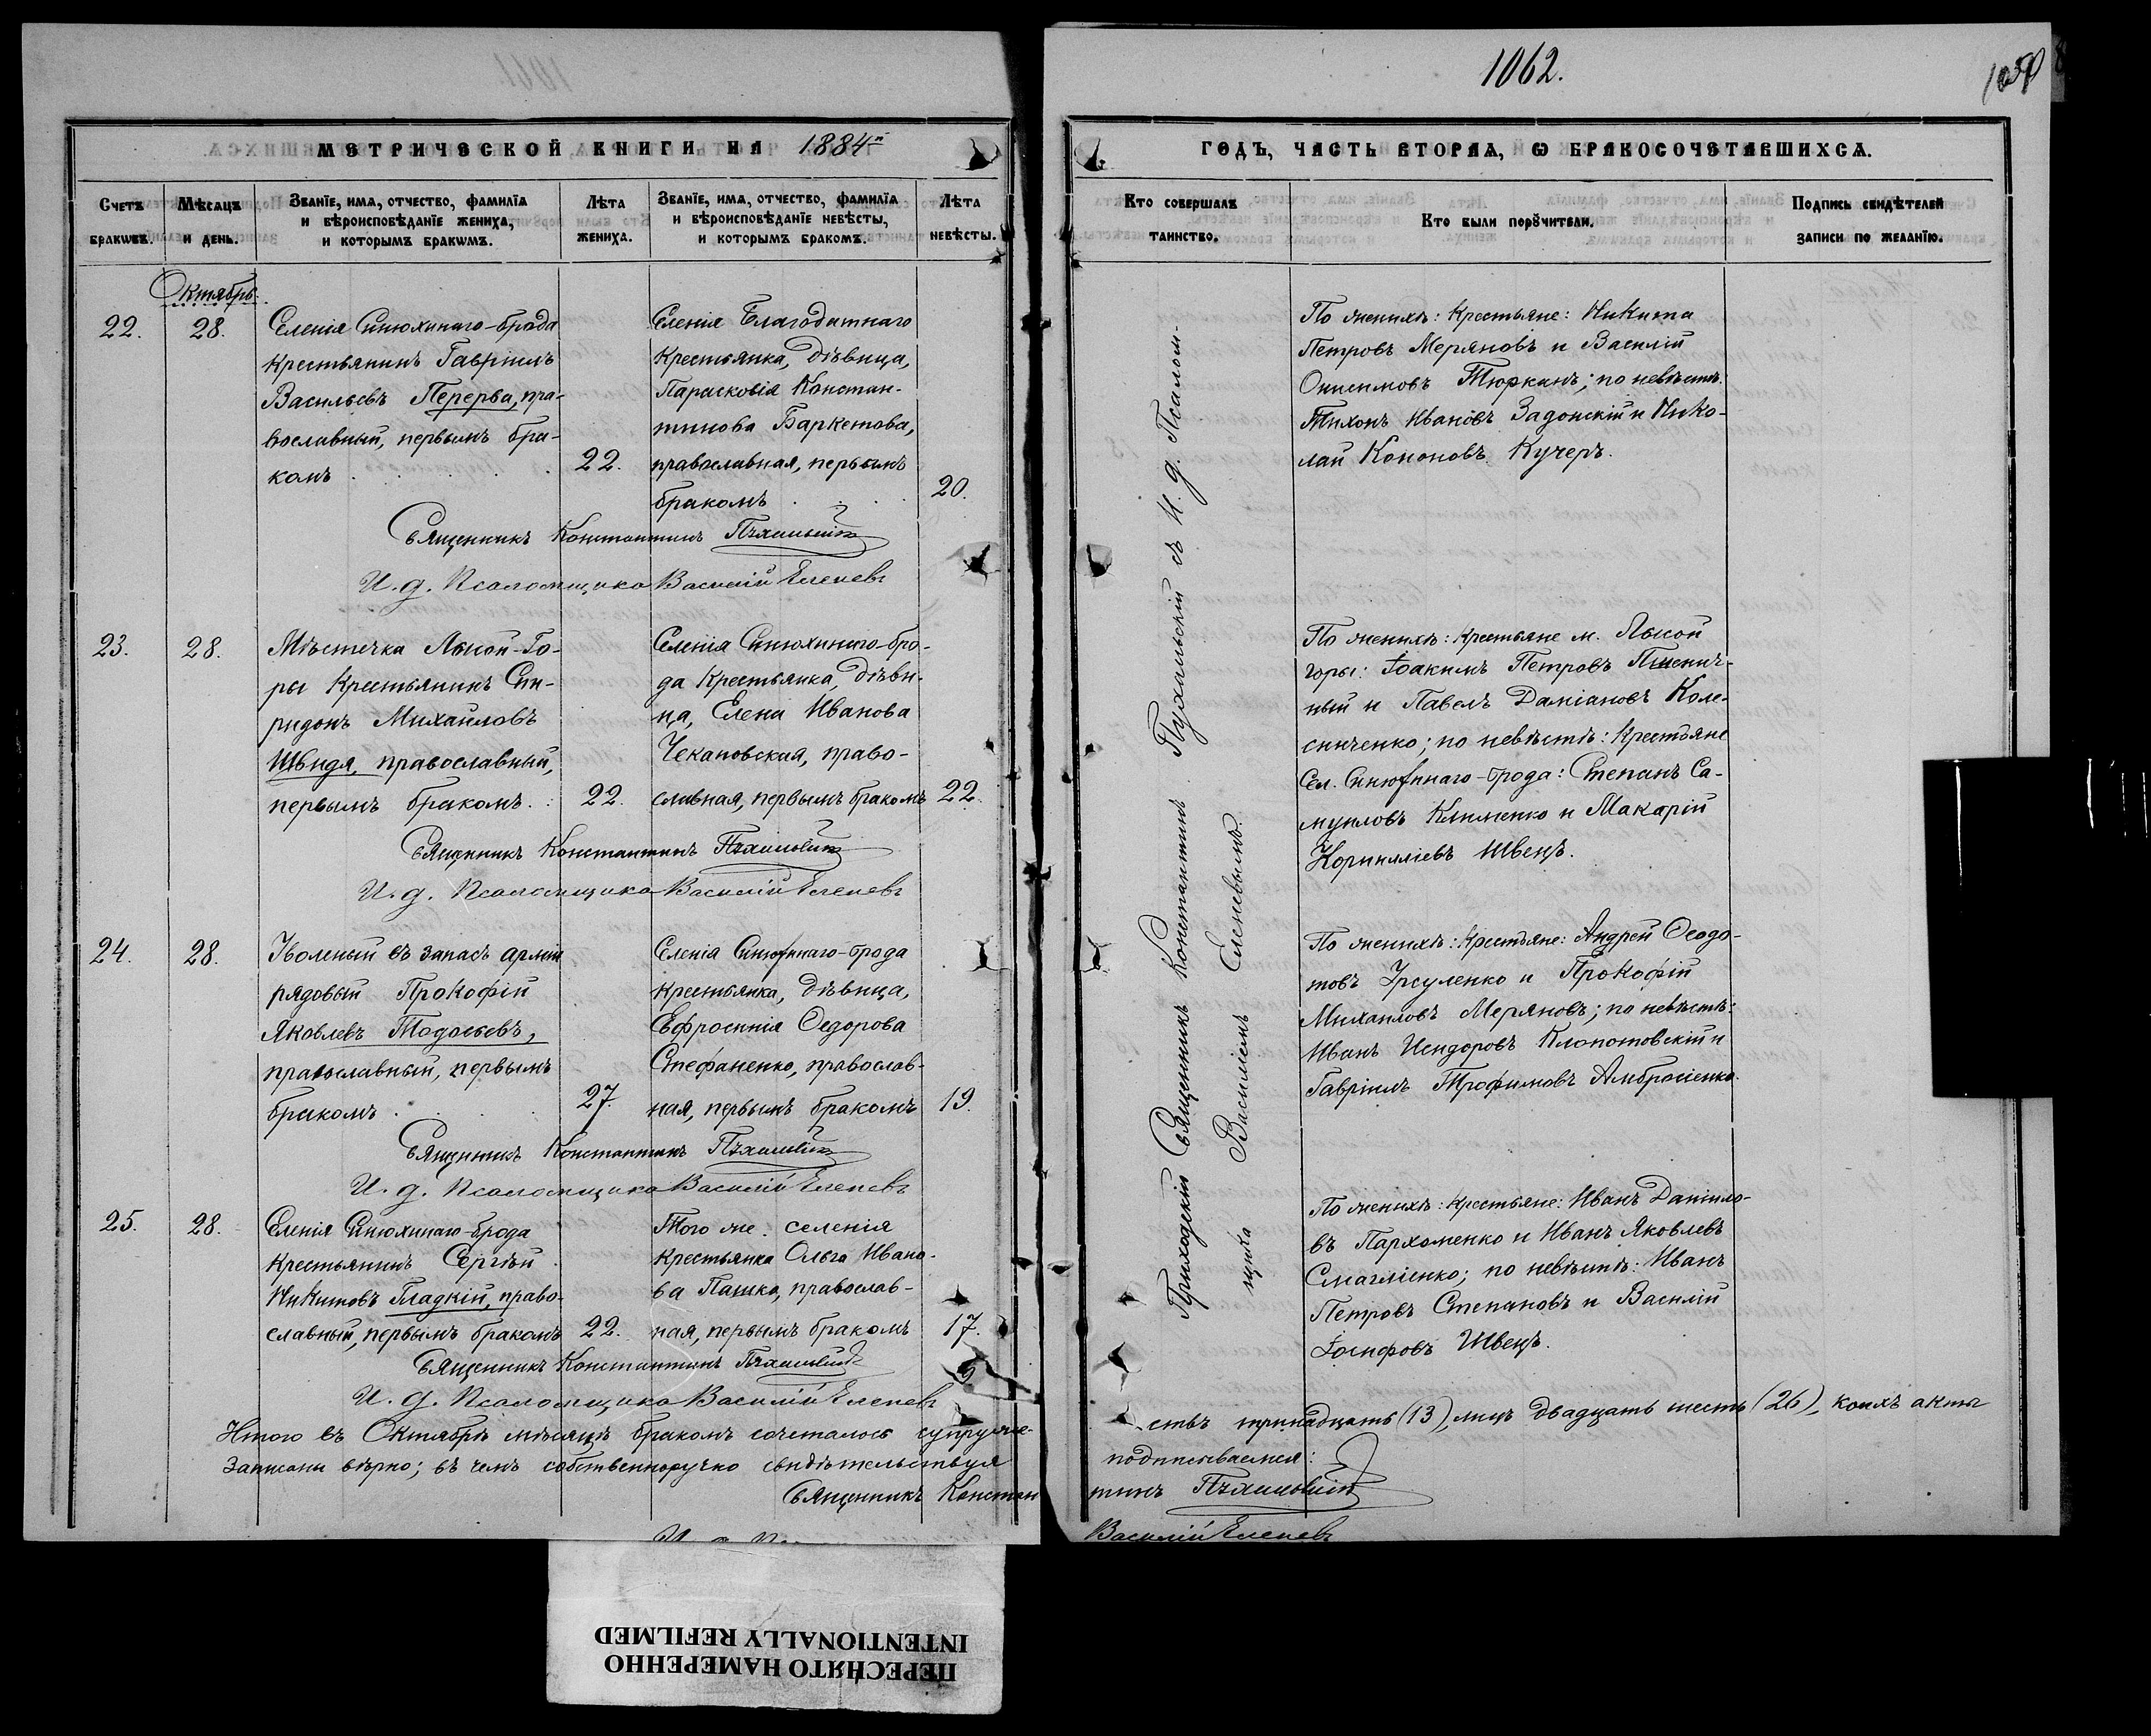 1062.
МЕТРИЧЕСКОЙ КНИГИ НА 1884й
ГОДЪ, ЧАСТЬ ВТОРАЯ, Ѡ БРАКОСОЧЕТАВШИХСЯ.
Счетъ браковъ.
Мѣсяцъ и день.
Званіе, имя, отчество, фамилія
и вѣроисповѣданіе жениха,
и которымъ бракомъ.
Лѣта
жениха.
Званіе, имя, отчество, фамилія
и вѣроисповѣданіе невѣсты,
и которымъ бракомъ.
Лѣта
невѣсты.
Кто совершалъ
таинство.
Кто были поручители.
Подпись свидѣтелей
записи по желанію.
Октябрь.
22.
28.
Селенія Синюхинаго-брода
крестьянинъ Гавріилъ
Васильевъ Перерва, пра-
вославный, первымъ бра-
комъ
22.
Селенія Благодатнаго
крестьянка, дѣвица,
Парасковія Констан-
тинова Баркетова,
православная, первымъ
бракомъ
20.
Священникъ Константинъ Пухальскій
И. д. Псаломщика Василій Еленевъ
23.
28.
Мѣстечка Лысой-Го-
ры крестьянинъ Спи-
ридонъ Михайловъ
Швидя, православный,
первымъ бракомъ.
22.
Селенія Синюхинаго-бро-
да крестьянка, дѣви-
ца, Елена Иванова
Чекановская, право-
славная, первымъ бракомъ
22.
Священникъ Константинъ Пухальскій
И. д. Псаломщика Василій Еленевъ
24.
28.
Уволеный въ запасъ арміи
рядовый Прокофій
Яковлевъ Тодосьевъ,
православный, первымъ
бракомъ
27.
Селенія Синюхинаго-брода
крестьянка, дѣвица,
Евфросинія Ѳедорова
Стефаненко, православ-
ная, первымъ бракомъ
19.
Священникъ Константинъ Пухальскій
И. д. Псаломщика Василій Еленевъ
25.
28.
Селенія Синюхинаго-брода
крестьянинъ Сергѣй
Никитовъ Гладкій, право-
славный, первымъ бракомъ
22.
Того же селенія
крестьянка Ольга Ивано-
ва Пашко, православ-
ная, первымъ бракомъ
17.
Священникъ Константинъ Пухальскій
И. д. Псаломщика Василій Еленевъ
Итого въ Октябрѣ мѣсяцѣ бракомъ сочеталось супруже-
Записаны вѣрно; въ чемъ собственноручно свидѣтельствуя
Священникъ Констан
Приходскій Священникъ Константинъ Пухальскій съ И. д. Псалом-
щика Василіемъ Еленевымъ.
По женихѣ: крестьяне: Никита
Петровъ Меряновъ и Василій
Онисимовъ Тюрканъ; по невѣстѣ:
Тихонъ Ивановъ Задонскій и Нико-
лай Кононовъ Кучеръ.
По женихѣ: крестьяне м. Лысой
горы: Іоакимъ Петровъ Пшенич-
ный и Павелъ Даміановъ Коле-
сниченко; по невѣстѣ: крестьяне
Сел. Синюхинаго-брода: Степанъ Са-
муиловъ Клименко и Макарій
Корниліевъ Швецъ.
По женихѣ: крестьяне: Андрей Ѳеодо-
товъ Урсуленко и Прокофій
Михаиловъ Меряновъ; по невѣстѣ:
Иванъ Исидоровъ Клопотовскій и
Гавріилъ Трофимовъ Амбросіенко.
По женихѣ: крестьяне: Иванъ Даніило-
въ Пархоменко и Иванъ Яковлевъ
Смагліенко; по невѣстѣ: Иванъ
Петровъ Степановъ и Василій
Іосифовъ Швецъ.
ствъ тринадцать (13), лицъ двадцать шесть (26), коихъ акты
подписываемся:
тинъ Пухальскій
Василій Еленевъ
ПЕРЕСНЯТО НАМЕРЕННО
INTENTIONALLY REFILMED